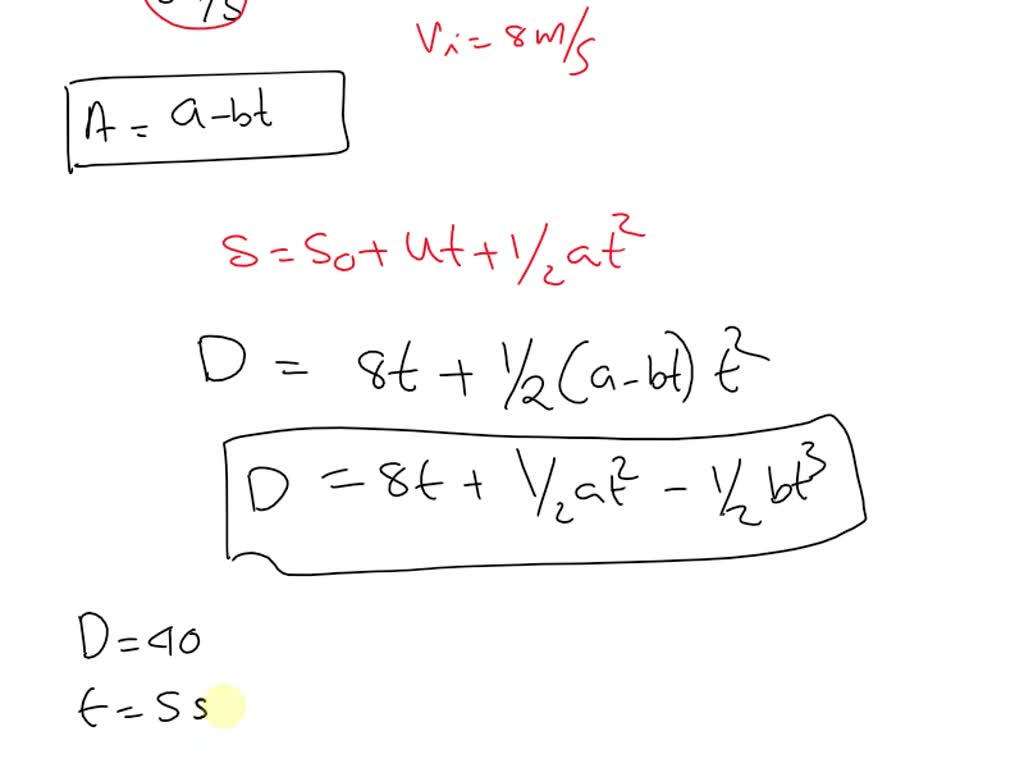 Vi = 8 m/s
A = a-bt
S = S0 + ut + 1/2 at²
D = 8t + 1/2 (a-bt) t²
D = 8t + 1/2 at² - 1/2 bt³
D = 40
t = 5 s